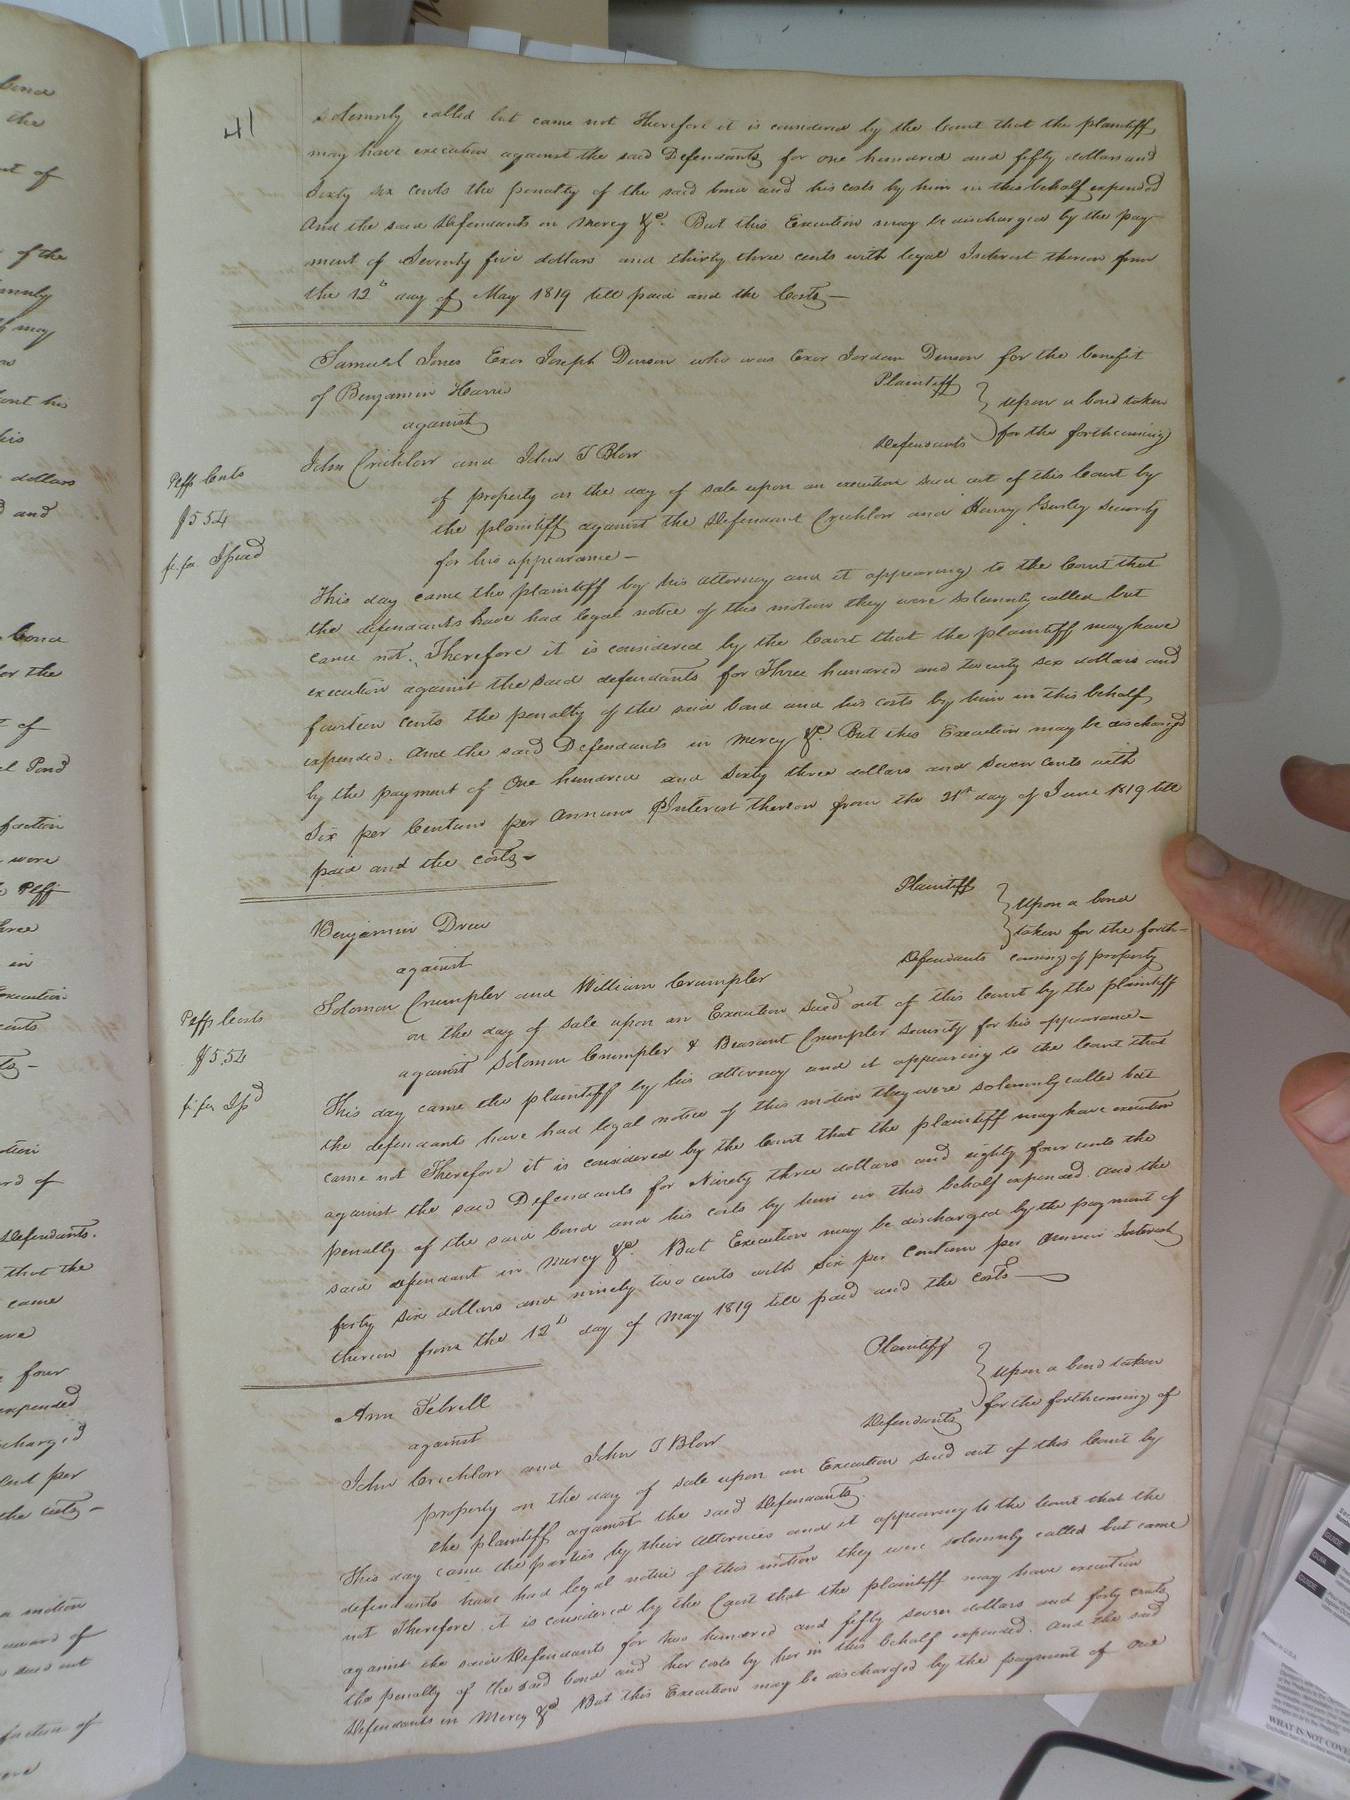 41
solemnly called but came not Therefore it is considered by the Court that the plaintiff
may have execution against the said Defendants for one hundred and fifty dollars and
Sixty six cents the penalty of the said bond and his costs by him in this behalf expended
And the said Defendants in mercy &c. But this Execution may be discharged by the pay-
ment of Seventy five dollars and thirty three cents with legal Interest thereon from
the 12th day of May 1819 till paid and the Costs—
Samuel Jones Exor Joseph Denson who was Exor Jordan Denson for the benefit
of Benjamin Harris Plaintiff
against
John Crichlow and John T Blow Defendants
upon a bond taken
for the forthcoming
of property on the day of sale upon an execution sued out of this Court by
the plaintiff against the Defendant Crichlow and Henry Gurley security
for his appearance—
Plffs Costs
$5.54
fi. fa. Issued
This day came the plaintiff by his attorney and it appearing to the Court that
the defendants have had legal notice of this motion they were solemnly called but
came not. Therefore it is considered by the Court that the plaintiff may have
execution against the said defendants for Three hundred and twenty six dollars and
fourteen cents the penalty of the said bond and his costs by him in this behalf
expended. And the said Defendants in mercy &c. But this Execution may be discharged
by the payment of One hundred and sixty three dollars and seven cents with
Six per Centum per Annum Interest thereon from the 21st day of June 1819 till
paid and the costs—
Benjamin Drew Plaintiff
against
Solomon Crumpler and William Crumpler Defendants
Upon a bond
taken for the forth-
coming of property
on the day of sale upon an Execution sued out of this Court by the plaintiff
against Solomon Crumpler & Beasant Crumpler security for his appearance—
Plffs Costs
$5.54
fi. fa. Issd
This day came the plaintiff by his attorney and it appearing to the Court that
the defendant have had legal notice of this motion they were solemnly called but
came not Therefore it is considered by the Court that the plaintiff may have execution
against the said Defendants for Ninety three dollars and eighty four cents the
penalty of the said bond and his costs by him in this behalf expended. And the
said defendant in mercy &c. But Execution may be discharged by the payment of
forty six dollars and ninety two cents with Six per Centum per Annum Interest
thereon from the 12th day of May 1819 till paid and the costs—
Ann Tebrell Plaintiff
against
John Crichlow and John T Blow Defendants
Upon a bond taken
for the forthcoming of
property on the day of sale upon an Execution sued out of this Court by
the plaintiff against the said Defendants.
This day came the parties by their attornies and it appearing to the Court that the
defendants have had legal notice of this motion they were solemnly called but came
not Therefore it is considered by the Court that the plaintiff may have execution
against the said Defendants for two hundred and fifty seven dollars and forty cents
the penalty of the said bond and her costs by her in this behalf expended. And the said
Defendants in Mercy &c But this Execution may be discharged by the payment of one